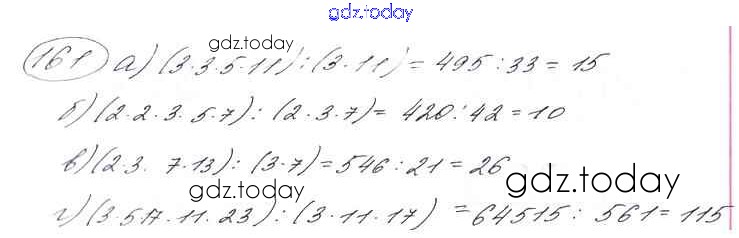 gdz.today
gdz.today
161 а) (3·3·5·11) : (3·11) = 495 : 33 = 15
б) (2·2·3·5·7) : (2·3·7) = 420 : 42 = 10
в) (2·3·7·13) : (3·7) = 546 : 21 = 26
gdz.today
gdz.today
г) (3·5·17·11·23) : (3·11·17) = 64515 : 561 = 115